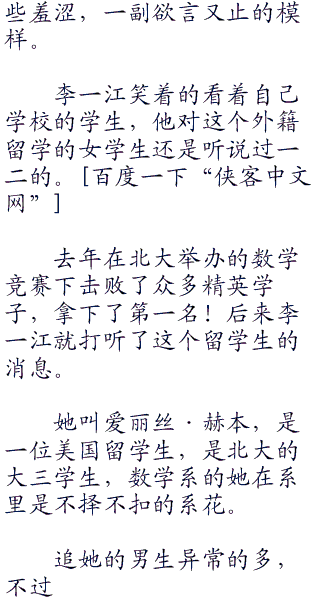 些羞涩，一副欲言又止的模
样。
李一江笑着的看着自己
学校的学生，他对这个外籍
留学的女学生还是听说过一
二的。[百度一下“侠客中文
网”]
去年在北大举办的数学
竞赛下击败了众多精英学
子，拿下了第一名！后来李
一江就打听了这个留学生的
消息。
她叫爱丽丝·赫本，是
一位美国留学生，是北大的
大三学生，数学系的她在系
里是不择不扣的系花。
追她的男生异常的多，
不过